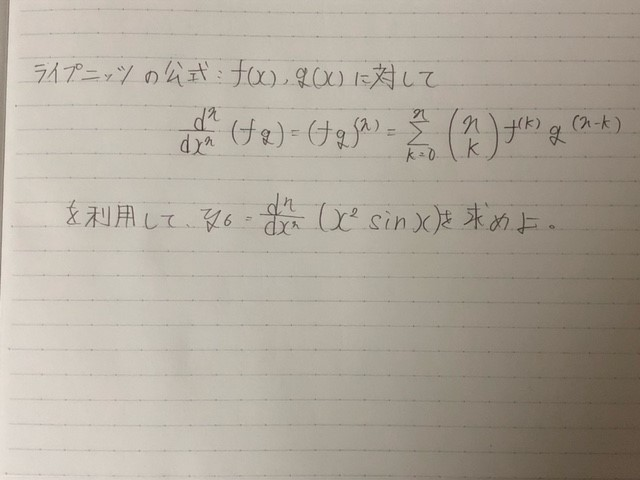 ライプニッツの公式:f(x),g(x)に対して
dⁿ/dxⁿ (fg)=(fg)⁽ⁿ⁾=∑ₖ₌₀ⁿ (n k) f⁽ᵏ⁾ g⁽ⁿ⁻ᵏ⁾
を利用して、y₆=dⁿ/dxⁿ (x² sin x)を求めよ。